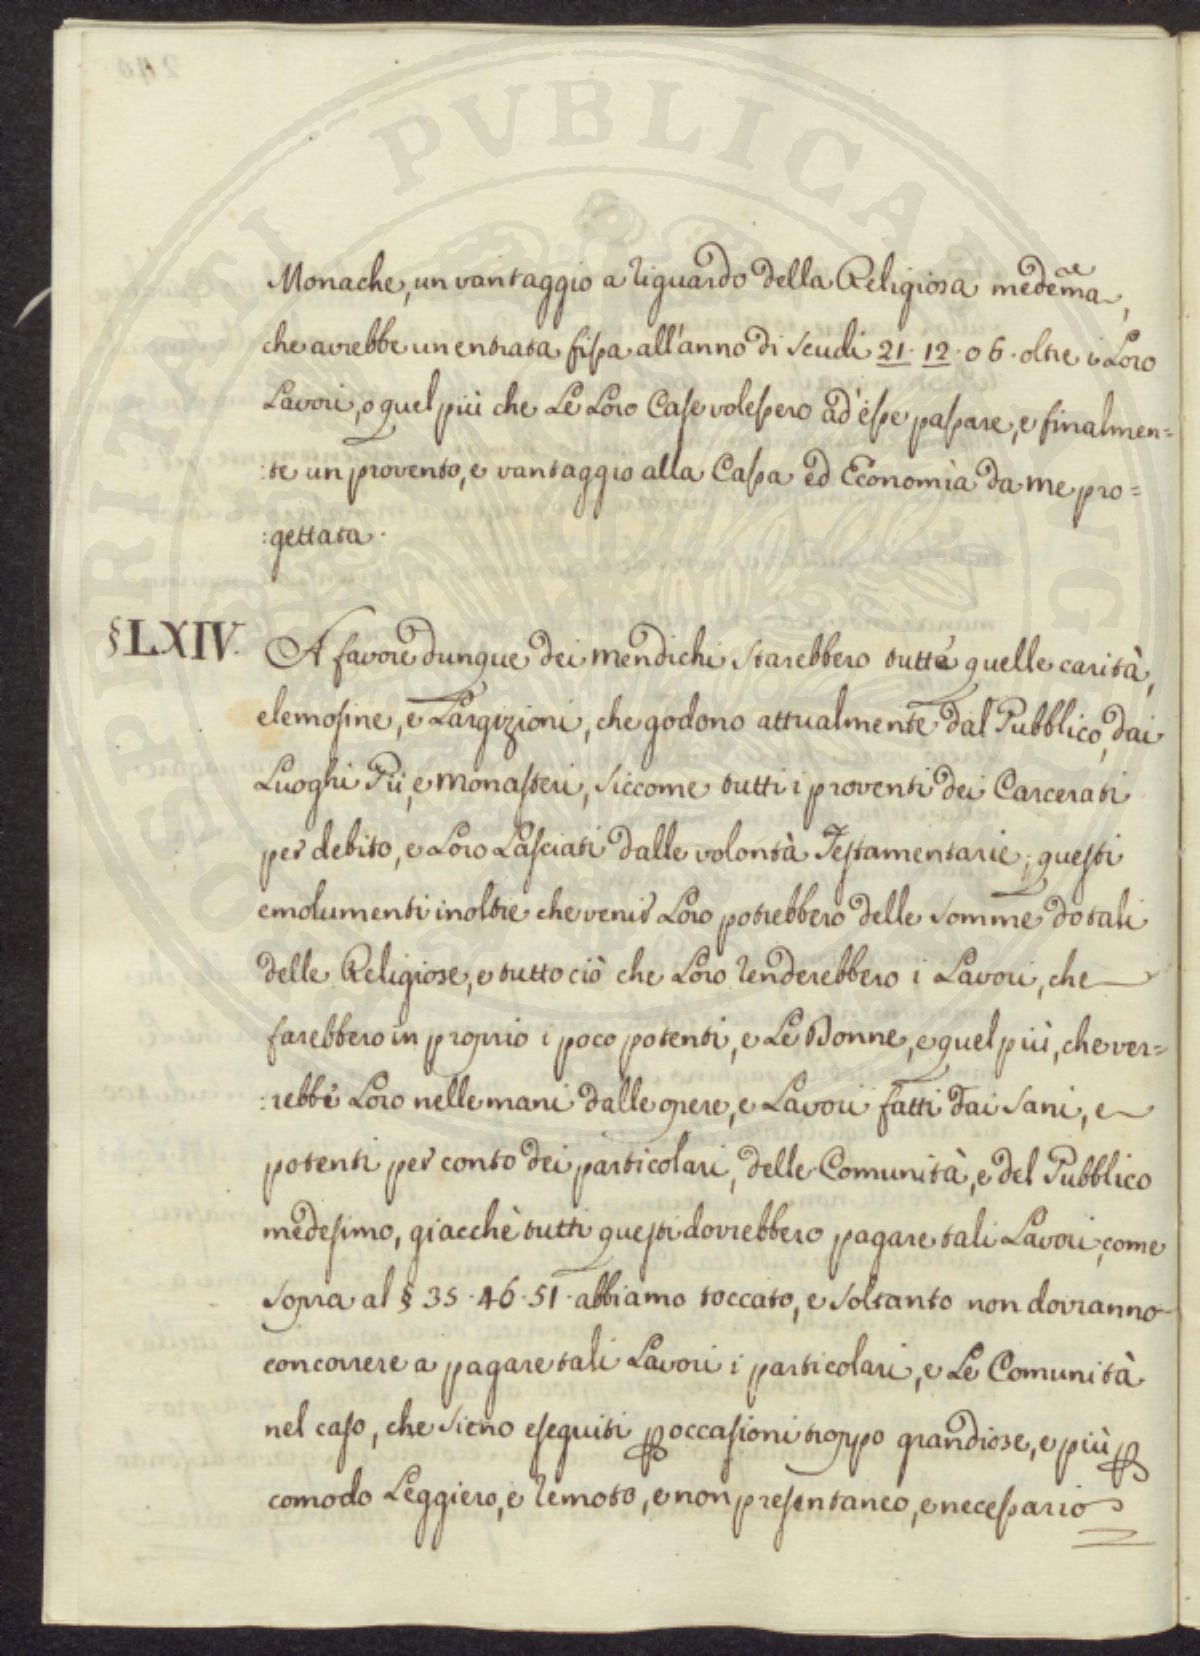 PROSPERITATI PUBLICAE AUG
Monache, un vantaggio a riguardo della Religiosa medema,
che avrebbe un entrata fissa all'anno di scudi 21. 12. 06. oltre i Loro
Lavori, o quel più che Le Loro Case volessero ad esse passare, e finalmen=
:te un provento, e vantaggio alla Cassa ed Economìa da me pro=
:gettata.
§LXIV. A favore dunque dei mendichi starebbero tutte quelle carità,
elemosine, e Largizioni, che godono attualmente dal Pubblico, dai
Luoghi Pii, e Monasteri, siccome tutti i proventi dei Carcerati
per debito, e Loro Lasciati dalle volontà Testamentarie; questi
emolumenti inoltre che venir Loro potrebbero delle somme dotali
delle Religiose, e tutto ciò che Loro renderebbero i Lavori, che
farebbero in proprio i poco potenti, e Le Donne, e quel più, che ver=
:rebbe Loro nelle mani dalle opere, e Lavori fatti dai sani, e
potenti per conto dei particolari, delle Comunità, e del Pubblico
medesimo, giacchè tutti questi dovrebbero pagare tali Lavori, come
sopra al § 35. 46. 51. abbiamo toccato, e soltanto non dovranno
concorrere a pagare tali Lavori i particolari, e Le Comunità
nel caso, che sieno eseguiti p occasioni troppo grandiose, e più p
comodo Leggiero, e remoto, e non presentaneo, e necessario